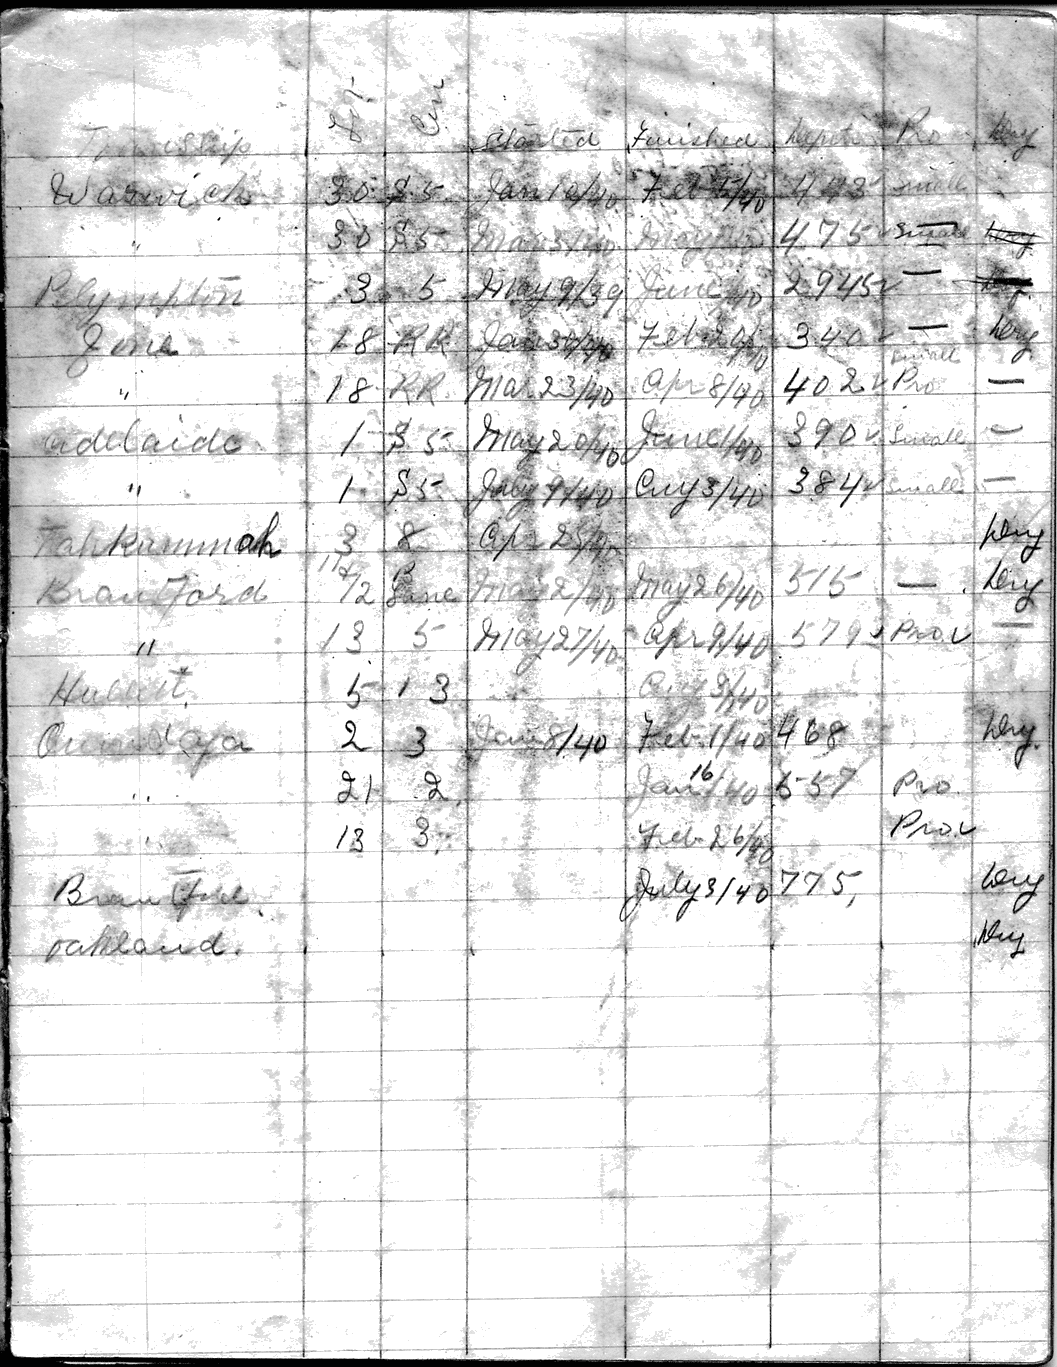 Township Lot Con Started Finished Depth Pro Dry
Warwick 30 S5 Jan 10/40 Feb 5/40 443 small
" 30 S5 Mar 3/40 May 475 small Dry
Plympton 3 5 May 9/39 June /40 2945 — Dry
Zone 18 RR Jan 30/40 Feb 20/40 340 — Dry
" 18 RR Mar 23/40 Apr 8/40 402 small Pro —
Adelaide 1 S5 May 20/40 June 1/40 390 small —
" 1 S5 July 9/40 Aug 3/40 384 small —
Tahkummah 3 8 Apr 25/40 Dry
Brantford Lane May 2/40 May 26/40 515 — Dry
" 13 5 May 27/40 Apr 9/40 579 Pro —
5 13 Aug 9/40
Onondaga 2 3 Jan 8/40 Feb 1/40 468 Dry.
" 21 2. Jan 16/40 557 Pro.
" 13 3. Feb 26/40 Pro
Brantford. July 3/40 775, Dry
oakland. Dry